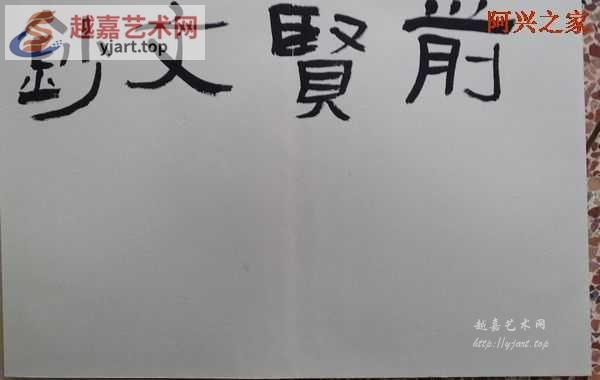 越嘉艺术网
yjart.top
阿兴之家
劉文賢前
越嘉艺术网
http://yjart.top